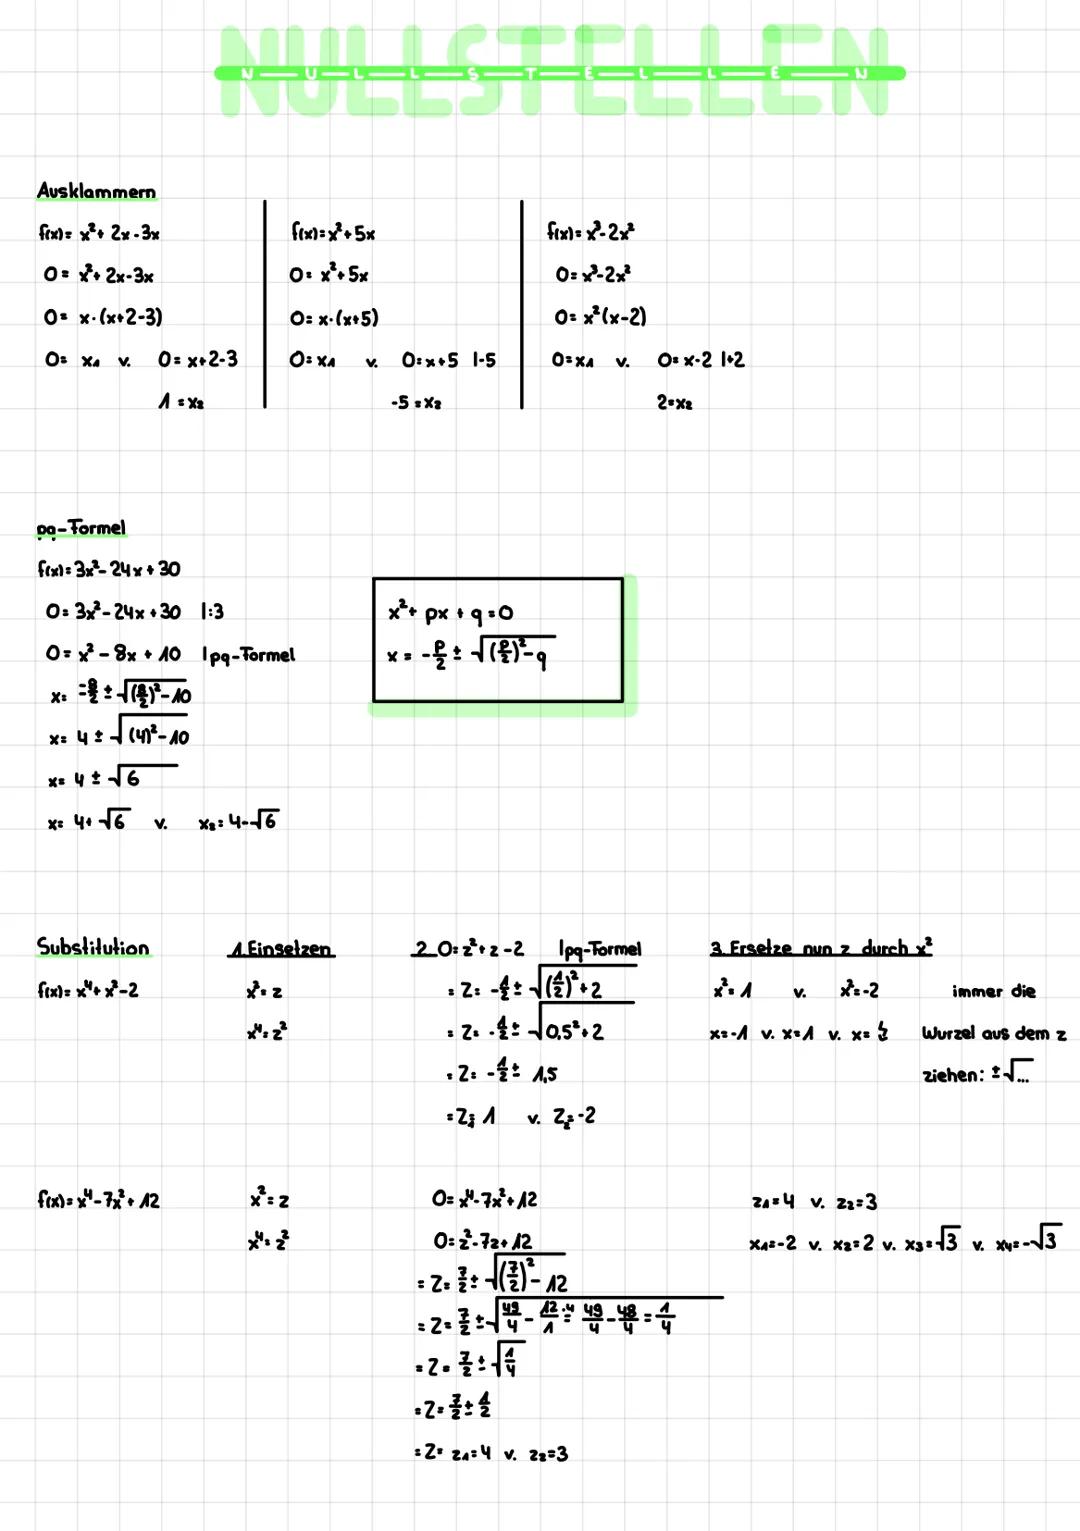 NULLSTELLEN
N U L L S T E L L E N
Ausklammern
f(x)= x²+ 2x-3x
0= x²+ 2x-3x
0= x·(x+2-3)
0= x₁ v. 0= x+2-3
1 = x₂
f(x)=x²+5x
0= x²+5x
0= x·(x+5)
0=x₁ v. 0=x+5 |-5
-5 = x₂
f(x)= x³-2x²
0= x³-2x²
0= x²(x-2)
0=x₁ v. 0= x-2 |+2
2=x₂
pq-Formel
f(x)=3x²-24x+30
0=3x²-24x+30 |:3
0= x²-8x+10 |pq-Formel
x= -⁻⁸⁄₂ ± √(⁸⁄₂)²-10
x= 4 ± √(4)²-10
x= 4 ± √6
x= 4+√6 v. x₂=4-√6
x²+ px + q =0
x = -p/2 ± √(p/2)²-q
Substitution
f(x)= x⁴+x²-2
1. Einsetzen
x²=z
x⁴=z²
2. 0=z²+z-2 |pq-Formel
= z= -1/2 ± √(1/2)²+2
= z= -1/2 ± √0,5²+2
= z= -1/2 ± 1,5
= z₁= 1 v. z₂=-2
3. Ersetze nun z durch x²
x²=1 v. x²=-2
x=-1 v. x=1 v. x= ↯
immer die
Wurzel aus dem z
ziehen: ±√...
f(x)= x⁴-7x²+12
x²=z
x⁴=z²
0= x⁴-7x²+12
0=z²-7z+12
= z= 7/2 ± √(7/2)²-12
= z= 7/2 ± √49/4 - 12/1 ·4 = 49/4 - 48/4 = 1/4
= z= 7/2 ± √1/4
= z= 7/2 ± 1/2
= z= z₁=4 v. z₂=3
z₁=4 v. z₂=3
x₁=-2 v. x₂=2 v. x₃=√3 v. x₄=-√3